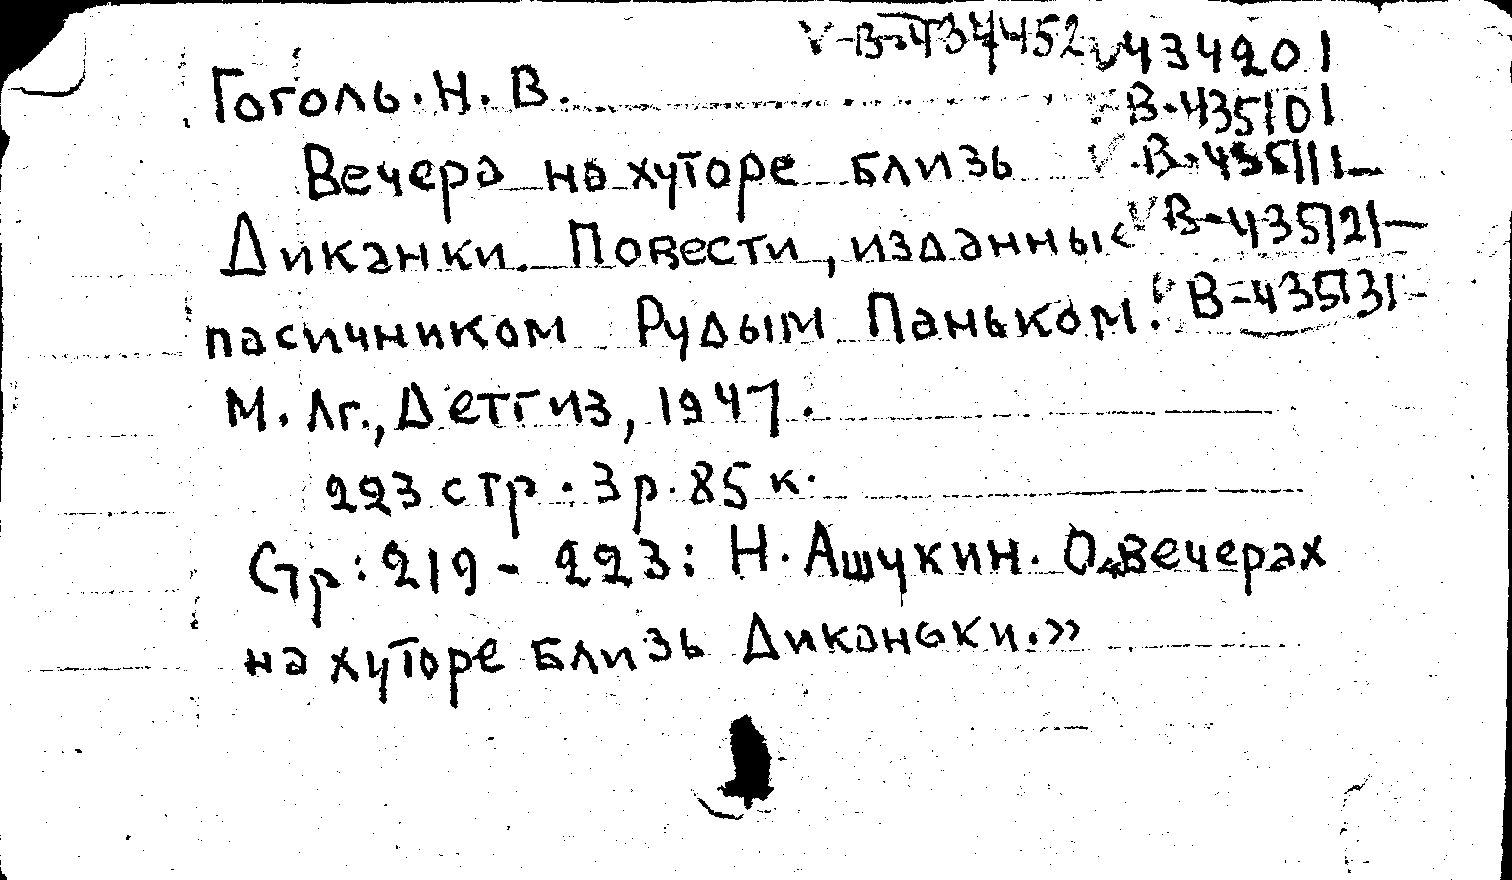 V-В-434452 V 434201
Гоголь. Н. В.
В-435101
Вечера на хуторе близь
V В-435111-
Диканки. Повести, изданные
V В-435121-
пасичником Рудым Паньком.
V В-435131-
М. Лг., Детгиз, 1947.
223 стр. 3 р. 85 к.
Стр: 219 - 223: Н. Ашукин. О «вечерах
на хуторе близь Диканьки.»